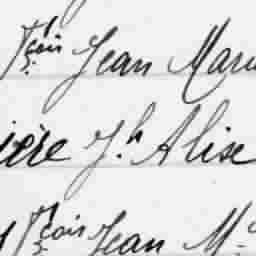 Fçois Jean Marie
ière Jh Alise
Fçois Jean M.